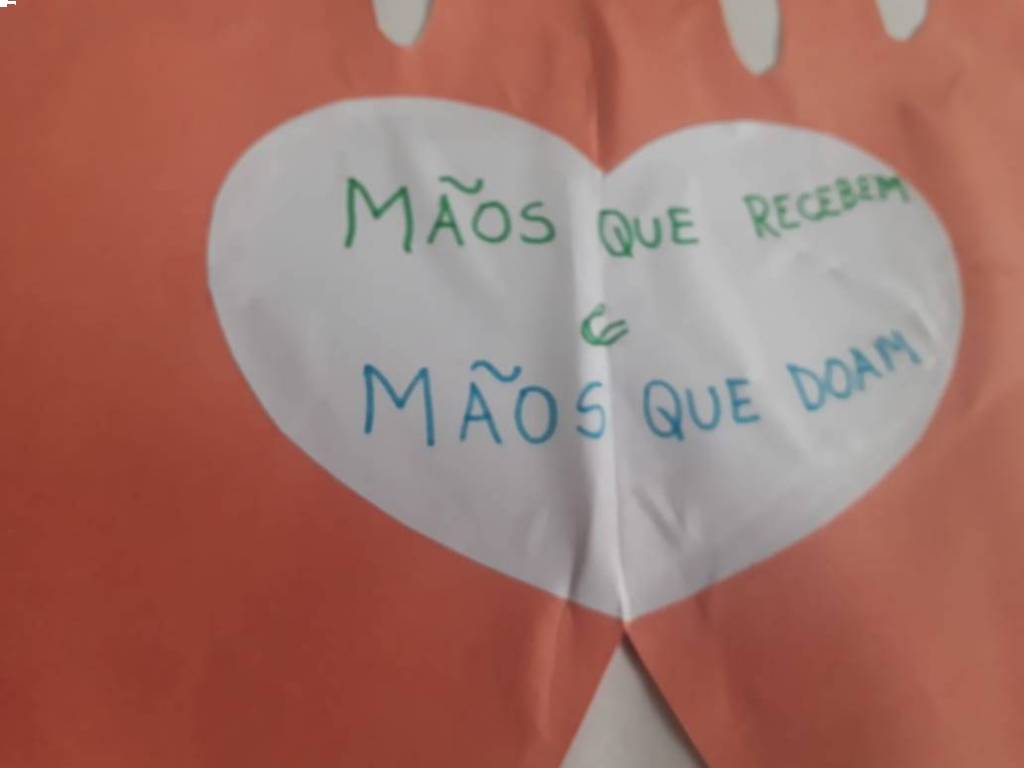 MÃOS QUE RECEBEM
e
MÃOS QUE DOAM